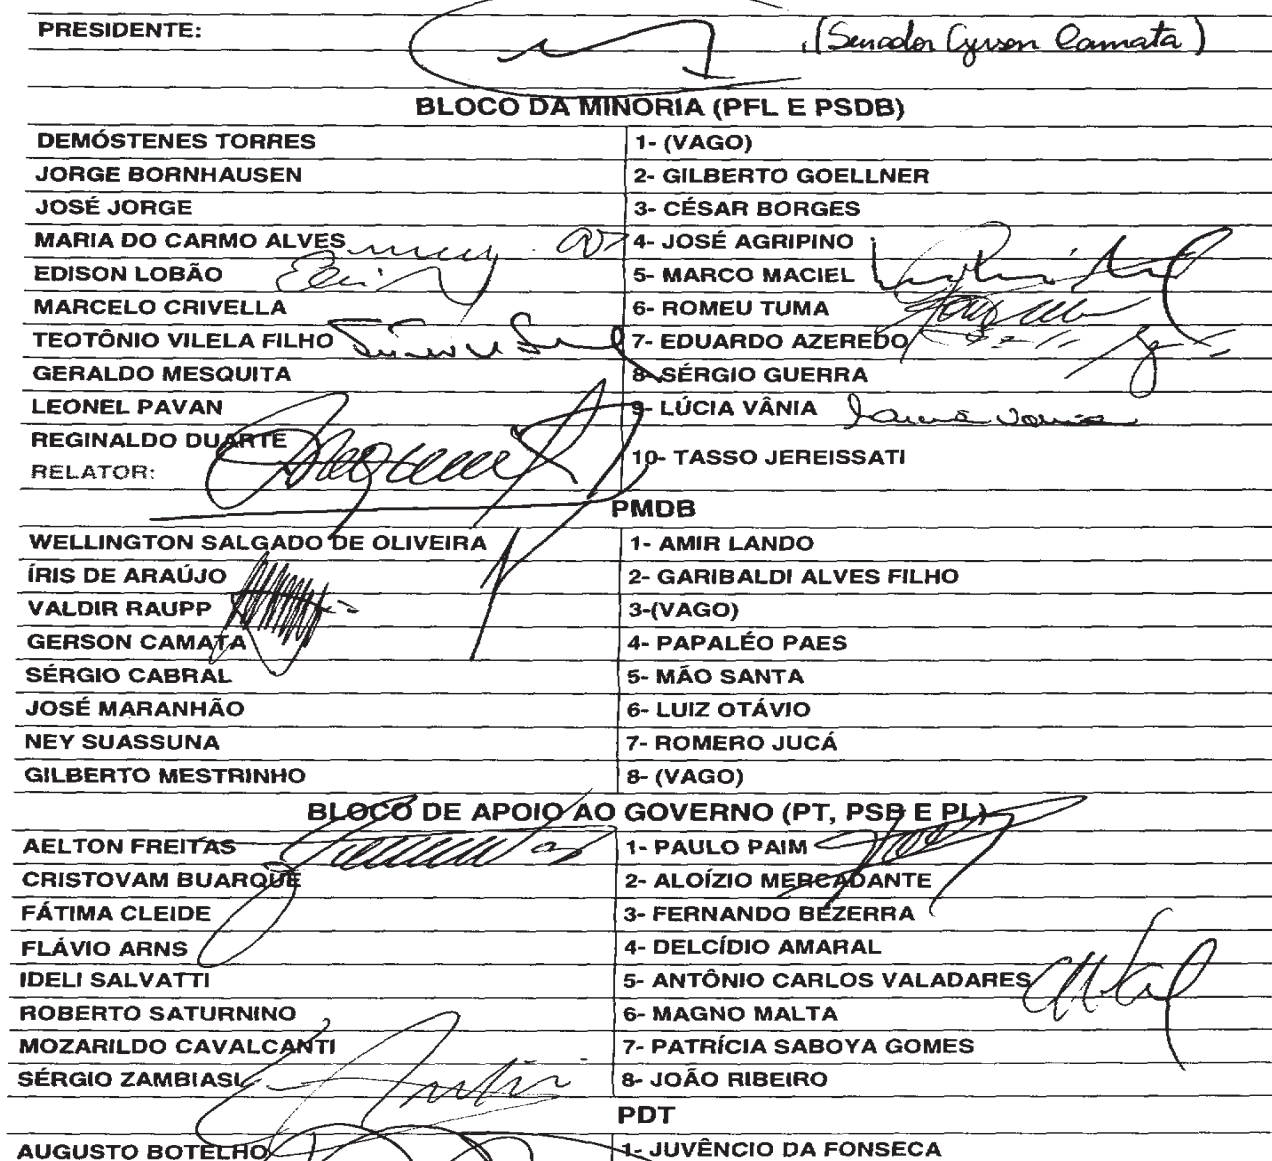 PRESIDENTE: (Senador Gerson Camata)
BLOCO DA MINORIA (PFL E PSDB)
DEMÓSTENES TORRES 1- (VAGO)
JORGE BORNHAUSEN 2- GILBERTO GOELLNER
JOSÉ JORGE 3- CÉSAR BORGES
MARIA DO CARMO ALVES 4- JOSÉ AGRIPINO
EDISON LOBÃO 5- MARCO MACIEL
MARCELO CRIVELLA 6- ROMEU TUMA
TEOTÔNIO VILELA FILHO 7- EDUARDO AZEREDO
GERALDO MESQUITA 8- SÉRGIO GUERRA
LEONEL PAVAN 9- LÚCIA VÂNIA
REGINALDO DUARTE
RELATOR: 10- TASSO JEREISSATI
PMDB
WELLINGTON SALGADO DE OLIVEIRA 1- AMIR LANDO
ÍRIS DE ARAÚJO 2- GARIBALDI ALVES FILHO
VALDIR RAUPP 3-(VAGO)
GERSON CAMATA 4- PAPALÉO PAES
SÉRGIO CABRAL 5- MÃO SANTA
JOSÉ MARANHÃO 6- LUIZ OTÁVIO
NEY SUASSUNA 7- ROMERO JUCÁ
GILBERTO MESTRINHO 8- (VAGO)
BLOCO DE APOIO AO GOVERNO (PT, PSB E PL)
AELTON FREITAS 1- PAULO PAIM
CRISTOVAM BUARQUE 2- ALOÍZIO MERCADANTE
FÁTIMA CLEIDE 3- FERNANDO BEZERRA
FLÁVIO ARNS 4- DELCÍDIO AMARAL
IDELI SALVATTI 5- ANTÔNIO CARLOS VALADARES
ROBERTO SATURNINO 6- MAGNO MALTA
MOZARILDO CAVALCANTI 7- PATRÍCIA SABOYA GOMES
SÉRGIO ZAMBIASI 8- JOÃO RIBEIRO
PDT
AUGUSTO BOTELHO 1- JUVÊNCIO DA FONSECA